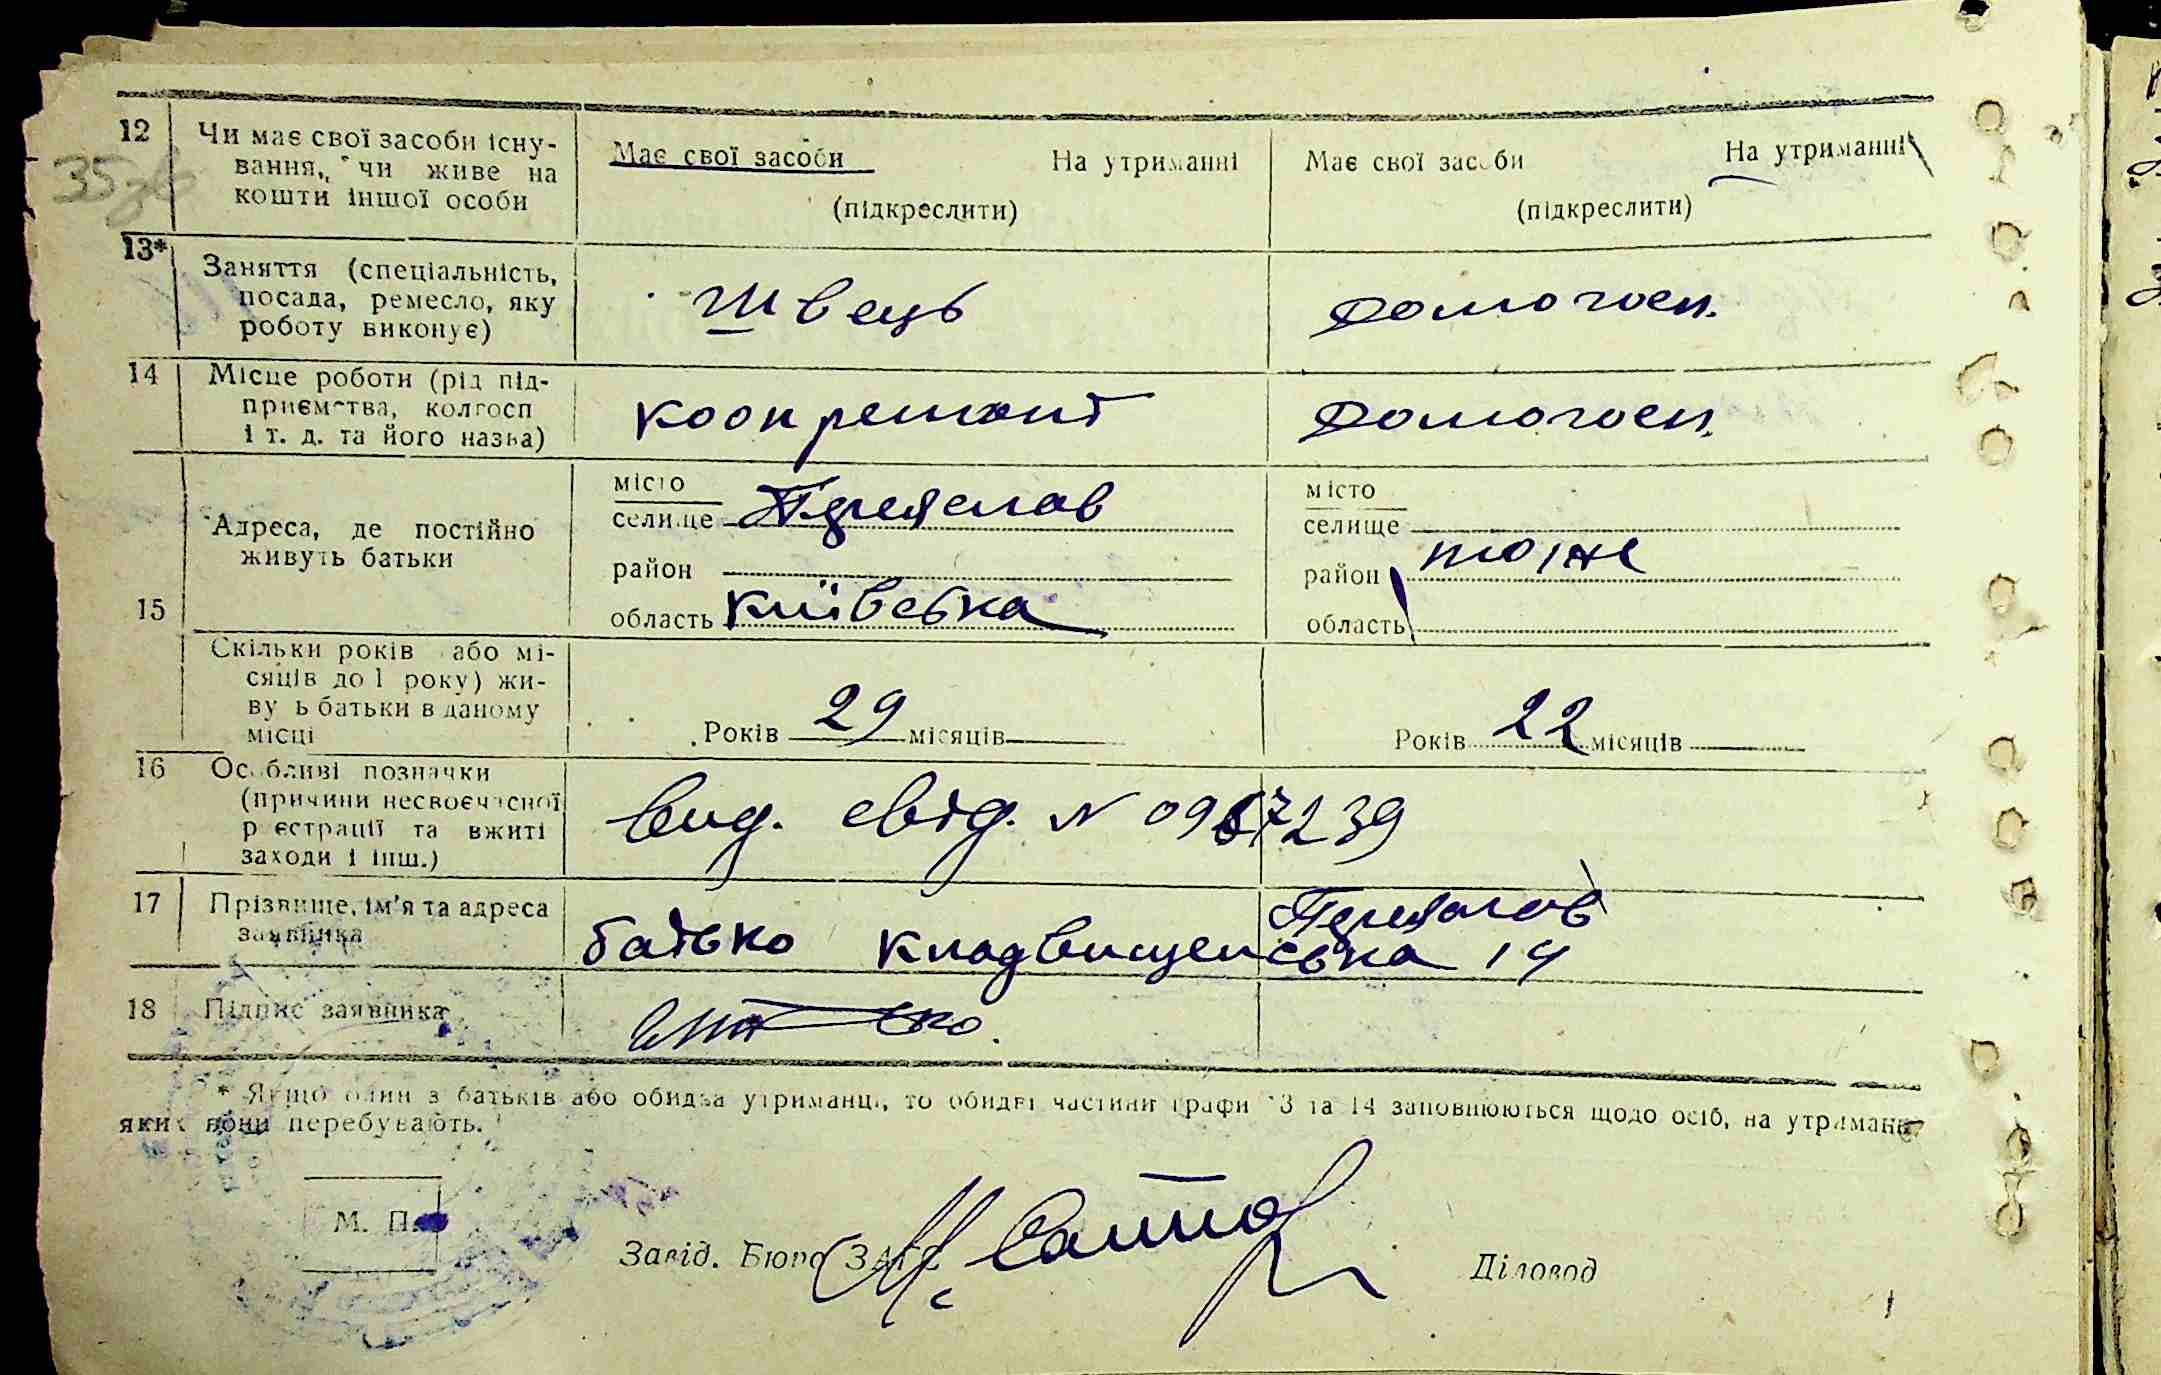 12 Чи має свої засоби існу-
вання, чи живе на
кошти іншої особи
Має свої засоби На утриманні
(підкреслити)
Має свої засоби На утриманні
(підкреслити)
35зв
13* Заняття (спеціальність,
посада, ремесло, яку
роботу виконує)
Швець
домогосп.
14 Місце роботи (рід під-
приємства, колгосп
і т. д. та його назва)
коопремонт
домогосп.
15 Адреса, де постійно
живуть батьки
місто
селище Переяслав
район
область Київська
місто
селище
район тоже
область
Скільки років або мі-
сяців до 1 року) жи-
ву ь батьки в даному
місці
Років 29 місяців
Років 22 місяців
16 Особливі позначки
(причини несвоєчасної
р єстрації та вжиті
заходи і інш.)
Вид. свід. N 0967239
17 Прізвище, ім'я та адреса
заявника
Переяслав
батько 14
18 Підпис заявника
* Якщо один з батьків або обидва утриманці, то обидві частини графи 13 та 14 заповнюються щодо осіб, на утриманні
яких вони перебувають.
М. П.
Завід. Бюро ЗАГС
Діловод